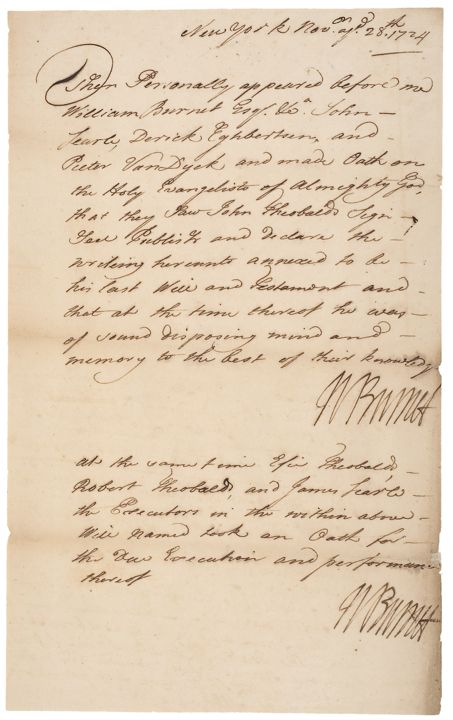 New York Nov. yᵉ 28.th 1724
Then Personally appeared before me
William Burnet Esqr. &a. John
Searle, Derick Eghbertsen, and
Pieter VanDyck and made Oath on
the Holy Evangelists of Almighty God,
that they Saw John Theobalds Sign
Seal Publish and declare the
writeing hereunto annexed to be
his last Will and Testament and
that at the time thereof he was
of sound disposing mind and
memory to the best of their knowledg
W Burnet
at the same time Theobalds
Robert Theobalds, and James Searle
the Executors in the within above
Will named took an Oath for
the due Execution and performance
thereof
W Burnet